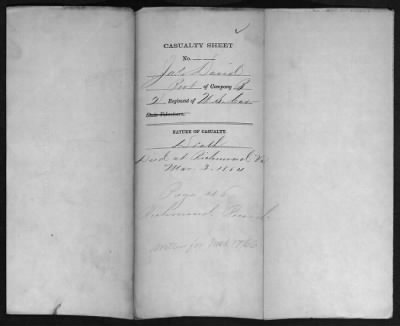 CASUALTY SHEET
No.
Jas. David
Pvt of Company B
2 Regiment of U.S. Cav
State Volunteers.
NATURE OF CASUALTY.
Death
Died at Richmond Va
Mar. 3. 1864
Page 46
Richmond
for